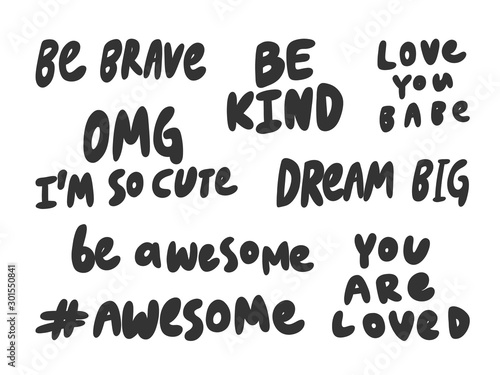 Be BRAVE
BE
KIND
LOVE
YOU
BABE
OMG
I'M SO CUTE
DREAM BIG
be awesome
YOU
ARE
LOVED
#AWESOME
Adobe Stock | #301550841